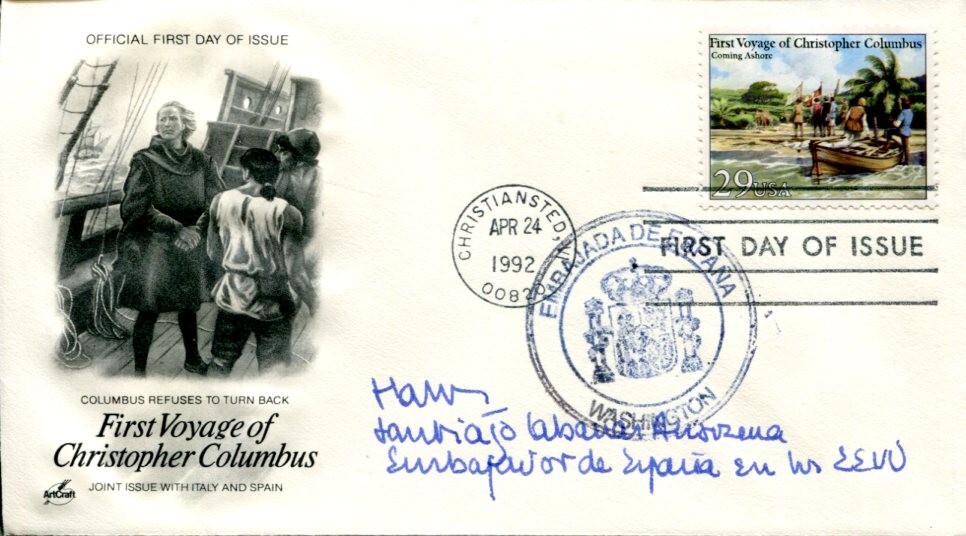 OFFICIAL FIRST DAY OF ISSUE
First Voyage of Christopher Columbus
Coming Ashore
29 USA
CHRISTIANSTED,
APR 24
1992
FIRST DAY OF ISSUE
EMBAJADA DE ESPAÑA
WASHINGTON
COLUMBUS REFUSES TO TURN BACK
First Voyage of
Christopher Columbus
ArtCraft
JOINT ISSUE WITH ITALY AND SPAIN
Santiago
Embajador de España en los EEUU